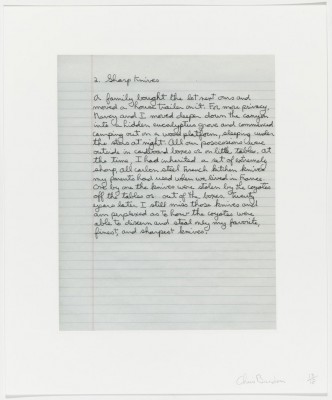 2. Sharp Knives
A family bought the lot next ours and
moved a house trailer on it. For more privacy,
Nancy and I moved deeper down the canyon
into a hidden eucalyptus grove and commenced
camping out on a wood platform, sleeping under
the stars at night. All our possessions were
outside in cardboard boxes or on little tables. At
the time, I had inherited a set of extremely
sharp, all carbon steel French kitchen knives
my parents had used when we lived in France.
One by one the knives were stolen by the coyotes
off the tables or out of the boxes. Twenty
years later I still miss those knives and
am perplexed as to how the coyotes were
able to discern and steal only my favorite,
finest, and sharpest knives.
Chris Burden